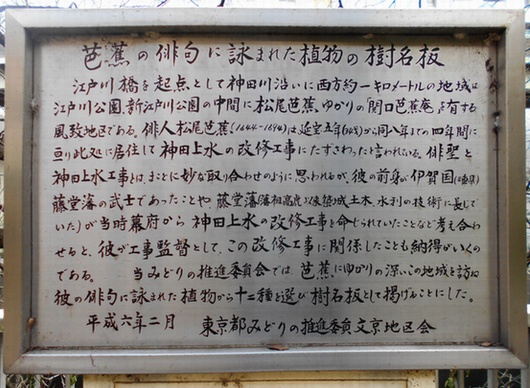 芭蕉の俳句に詠まれた植物の樹名板
江戸川橋を起点として神田川沿いに西方約一キロメートルの地域は
江戸川公園、新江戸川公園の中間に松尾芭蕉ゆかりの関口芭蕉庵を有する
風致地区である。俳人松尾芭蕉(1644-1694)は延宝五年から同八年までの四年間に
亘り此処に居住して神田上水の改修工事にたずさわったと言われている。俳聖と
神田上水工事とは、まことに妙な取り合わせのように思われるが、彼の前身が伊賀国
藤堂藩の武士であったことや藤堂藩(藩祖高虎以来築城土木、水利の技術に長じて
いた)が当時幕府から神田上水の改修工事を命じられていたことなど考え合わ
せると、彼が工事監督として、この改修工事に関係したことも納得がいくの
である。 当みどりの推進委員会では芭蕉にゆかりの深いこの地域を訪ね
彼の俳句に詠まれた植物から十二種を選び樹石板として掲げることにした。
平成六年二月 東京都みどりの推進委員文京地区会